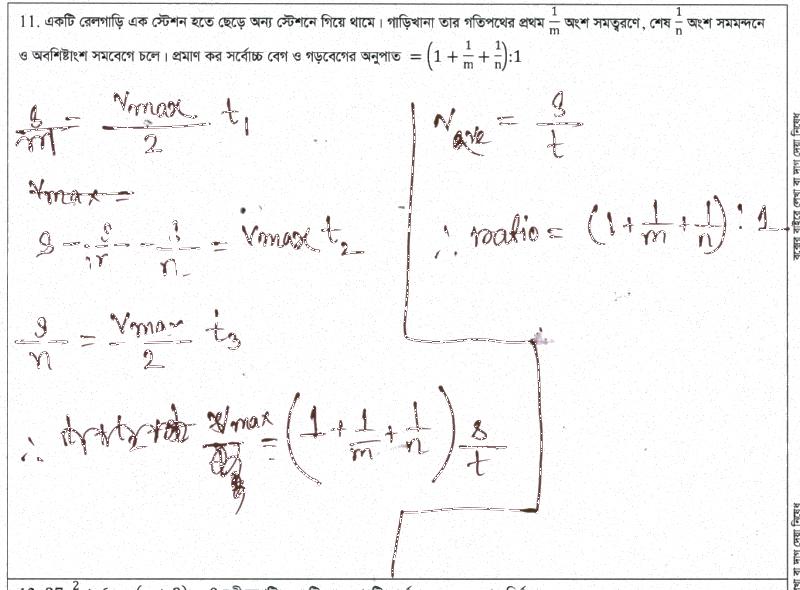 11. একটি রেলগাড়ি এক স্টেশন হতে ছেড়ে অন্য স্টেশনে গিয়ে থামে। গাড়িখানা তার গতিপথের প্রথম 1/m অংশ সমত্বরণে, শেষ 1/n অংশ সমমন্দনে
ও অবশিষ্টাংশ সমবেগে চলে। প্রমাণ কর সর্বোচ্চ বেগ ও গড়বেগের অনুপাত = (1 + 1/m + 1/n):1
s/m = Vmax/2 t₁
Vmax =
s - s/m - s/n = Vmax t₂
s/n = Vmax/2 t₃
∴ Vmax = (1 + 1/m + 1/n) s/t
Vave = s/t
∴ ratio = (1 + 1/m + 1/n) : 1